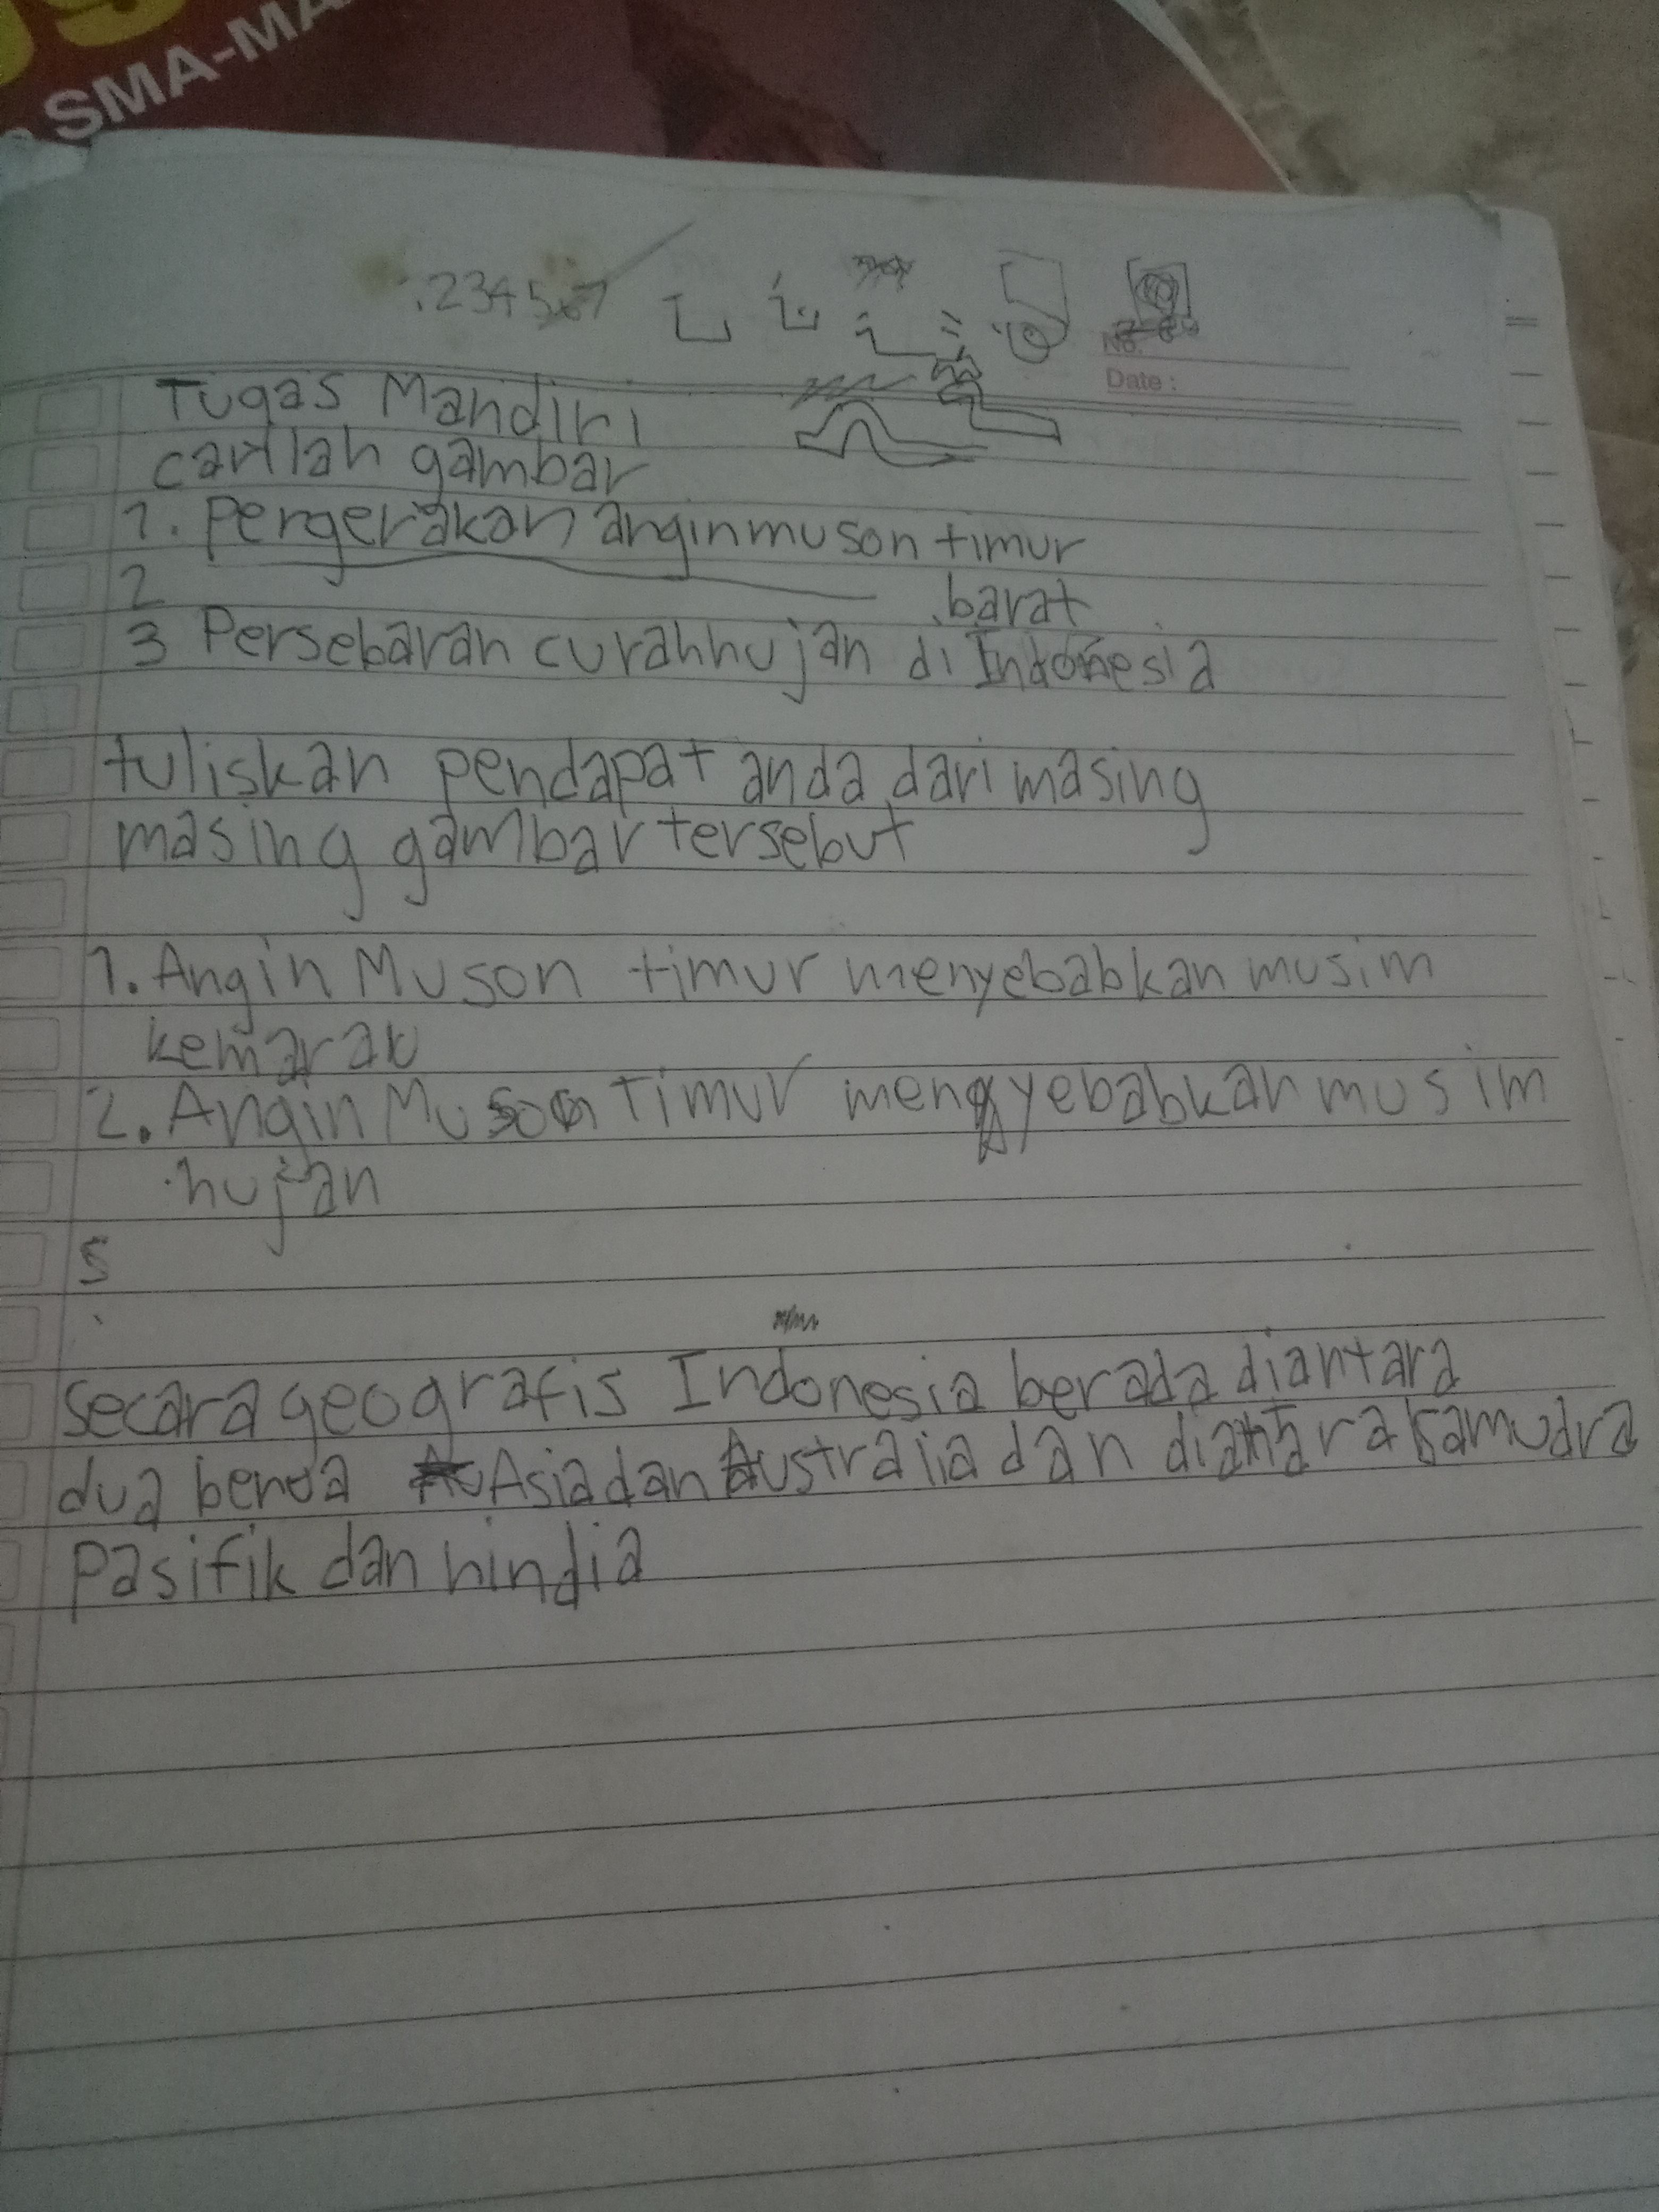 SMA-MA
.234567
No.
Date :
Tugas Mandiri
carilah gambar
1. Pergerakan angin muson timur
2 barat
3 Persebaran curah hujan di Indonesia
tuliskan pendapat anda dari masing
masing gambar tersebut
1. Angin Muson timur menyebabkan musim
kemarau
2. Angin Muson Timur mengyebabkan musim
hujan
S
secara geografis Indonesia berada diantara
dua benua Asia dan Australia dan diantara samudra
Pasifik dan hindia